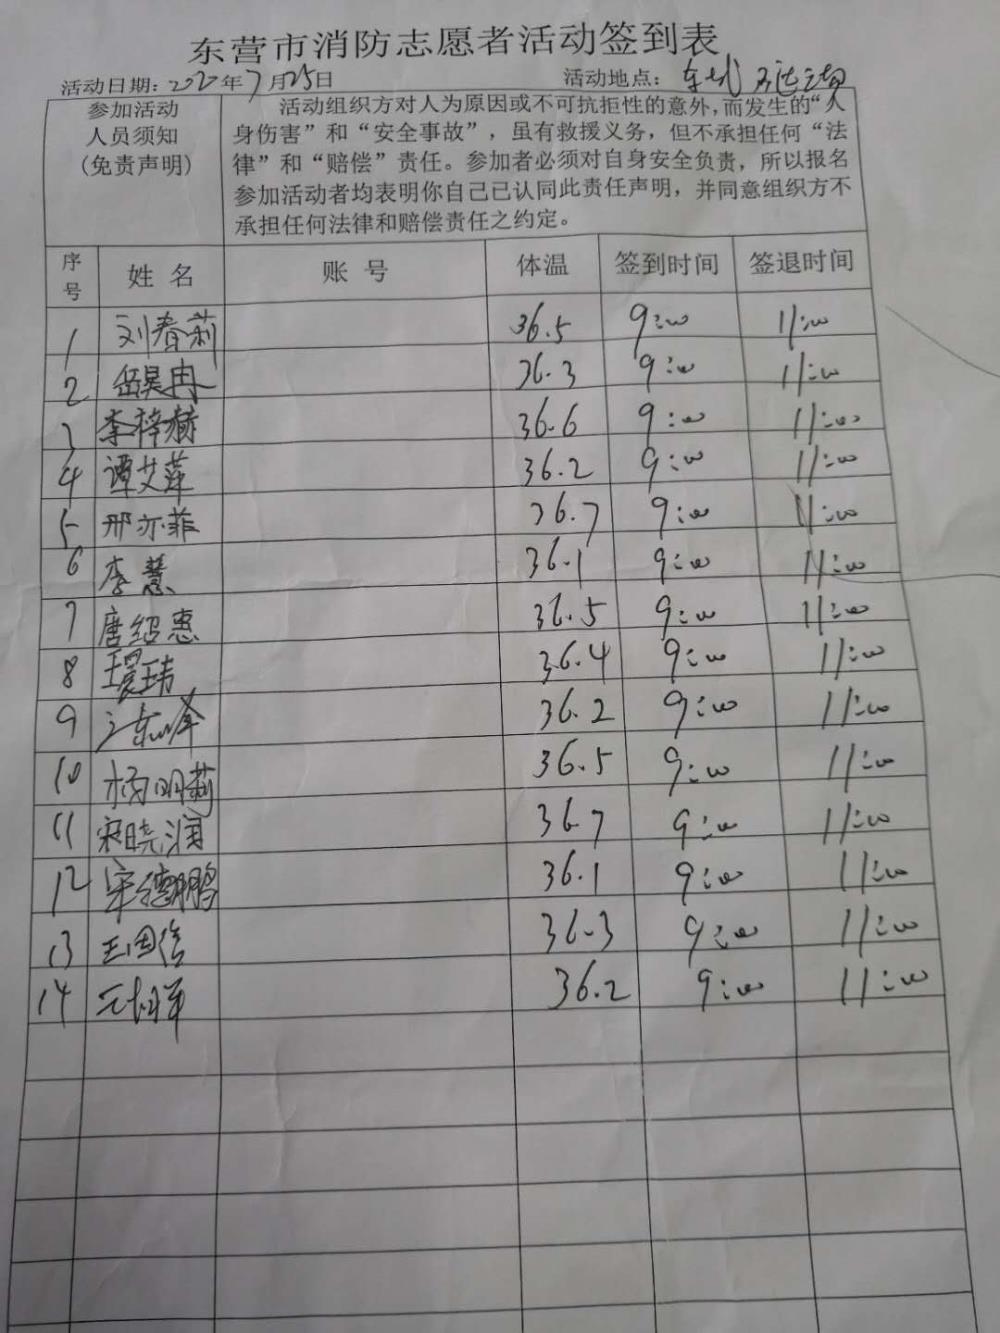 东营市消防志愿者活动签到表
活动日期：2020年7月25日 活动地点：东城
参加活动
人员须知
(免责声明)
活动组织方对人为原因或不可抗拒性的意外，而发生的“人
身伤害”和“安全事故”，虽有救援义务，但不承担任何“法
律”和“赔偿”责任。参加者必须对自身安全负责，所以报名
参加活动者均表明你自己已认同此责任声明，并同意组织方不
承担任何法律和赔偿责任之约定。
序号 姓名 账号 体温 签到时间 签退时间
1 刘春莉 36.5 9:00 11:00
2 岳昊冉 36.3 9:00 11:00
3 李梓赫 36.6 9:00 11:00
4 谭艾萍 36.2 9:00 11:00
5 邢亦菲 36.7 9:00 11:00
6 李慧 36.1 9:00 11:00
7 唐绍惠 36.5 9:00 11:00
8 王瑷玮 36.4 9:00 11:00
9 36.2 9:00 11:00
10 杨明莉 36.5 9:00 11:00
11 宋晓润 36.7 9:00 11:00
12 宋德鹏 36.1 9:00 11:00
13 王国信 36.3 9:00 11:00
14 36.2 9:00 11:00